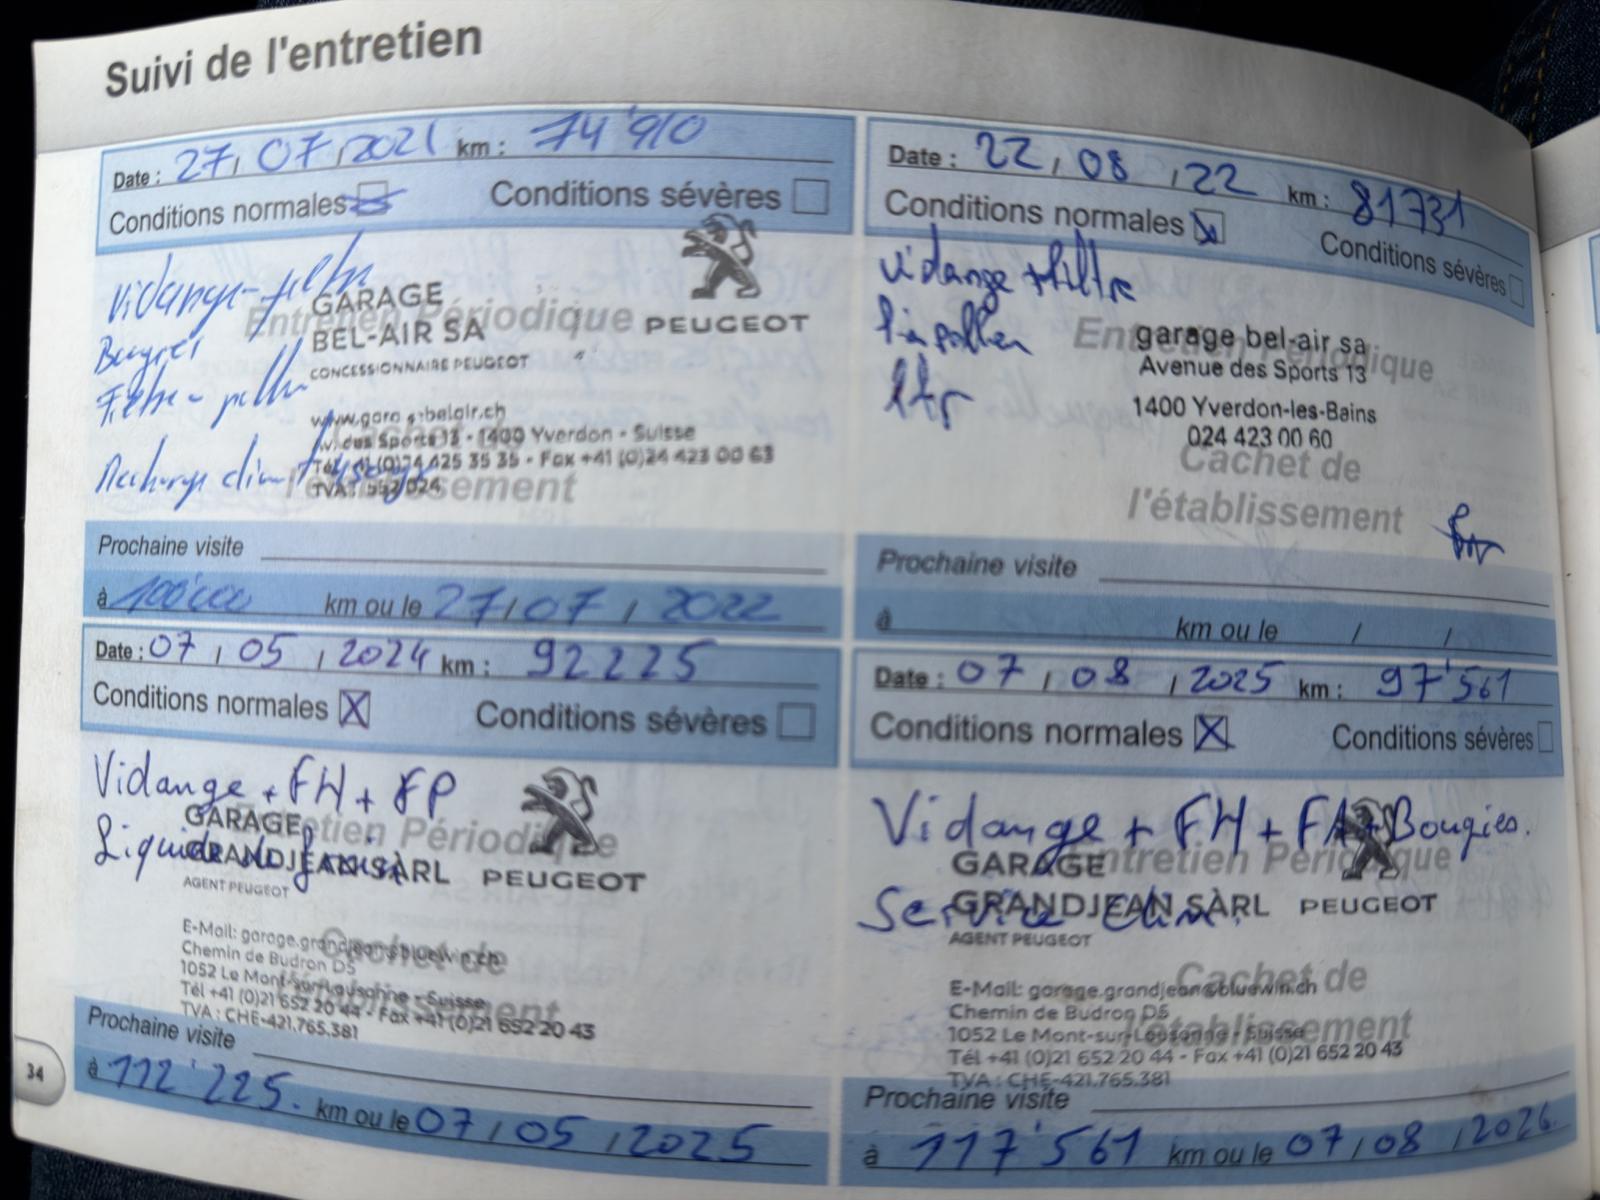 Suivi de l'entretien
Date : 27 / 07 / 2021 km : 74'910
Conditions normales Conditions sévères
Vidange - filtre
Bougies
Filtre - pollen
Recharge clim +
GARAGE
BEL-AIR SA
CONCESSIONNAIRE PEUGEOT
PEUGEOT
Entretien Périodique
Av. des Sports 13 - 1400 Yverdon - Suisse
Fax +41 (0)24 423 00 63
Cachet de
l'établissement
Prochaine visite
à 100'000 km ou le 27 / 07 / 2022
Date : 22 / 08 / 22 km : 81731
Conditions normales Conditions sévères
vidange + filtre
Entretien Périodique
garage bel-air sa
Avenue des Sports 13
1400 Yverdon-les-Bains
024 423 00 60
Cachet de
l'établissement
Prochaine visite
à km ou le / /
Date : 07 / 05 / 2024 km : 92225
Conditions normales X Conditions sévères
Vidange + FH + FP
Liquide de frein
Entretien Périodique
GARAGE
GRANDJEAN SÀRL
AGENT PEUGEOT
PEUGEOT
E-Mail: garage.grandjean@bluewin.ch
Chemin de Budron D5
1052 Le Mont-sur-Lausanne - Suisse
Tél +41 (0)21 652 20 44 - Fax +41 (0)21 652 20 43
TVA : CHE-421.765.381
Cachet de
l'établissement
Prochaine visite
à 112'225. km ou le 07 / 05 / 2025
Date : 07 / 08 / 2025 km : 97'561
Conditions normales X Conditions sévères
Vidange + FH + FA + Bougies.
Service Clim.
Entretien Périodique
GARAGE
GRANDJEAN SÀRL
AGENT PEUGEOT
PEUGEOT
E-Mail: garage.grandjean@bluewin.ch
Chemin de Budron D5
1052 Le Mont-sur-Lausanne - Suisse
Tél +41 (0)21 652 20 44 - Fax +41 (0)21 652 20 43
TVA : CHE-421.765.381
Cachet de
l'établissement
Prochaine visite
à 117'561 km ou le 07 / 08 / 2026
34